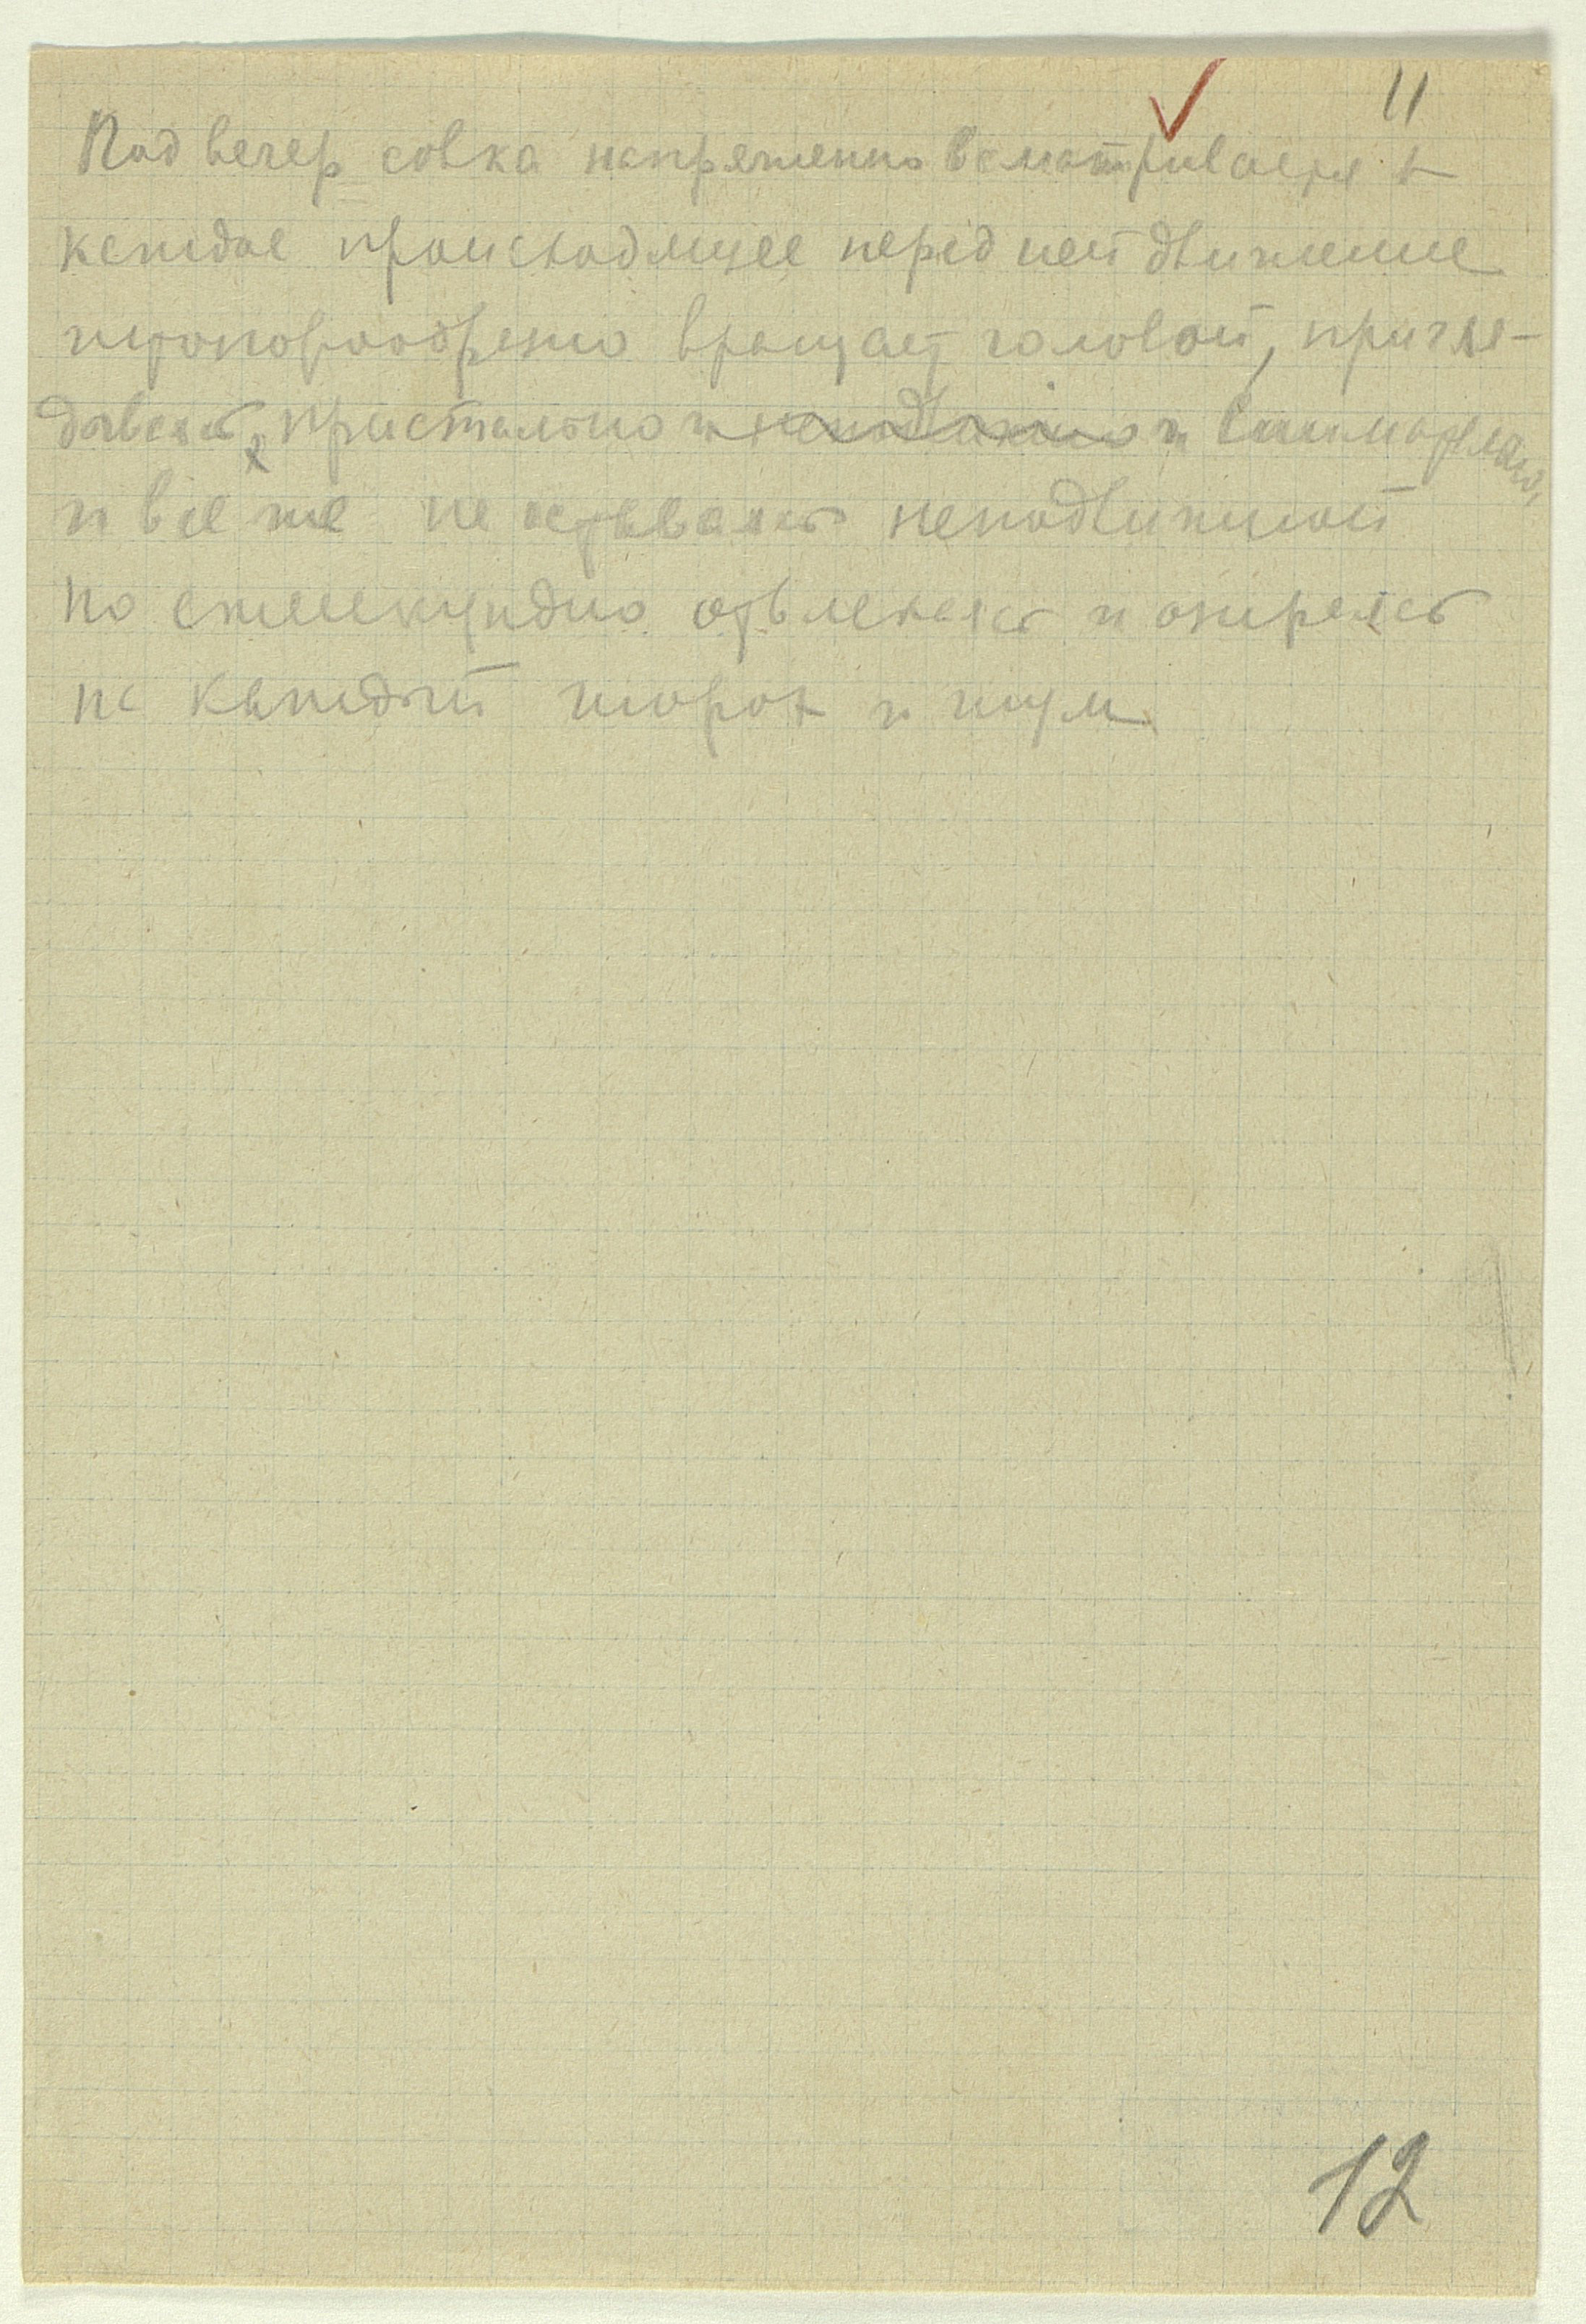 11
Под вечер совка напряженно всматривается в
каждое происходящее перед ней движение
штопорообразно вращает головой, пригля-
дываясь, пристально и неподвижно и внимательно,
и все же не оставаясь неподвижной
но ежесекундно отвлекаясь и озираясь
на каждый шорох и шум
12